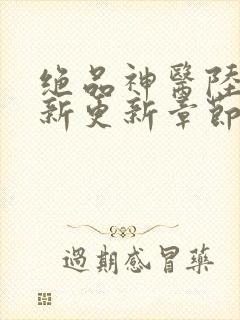 絕品神醫陸
新更新章節
過期感冒藥